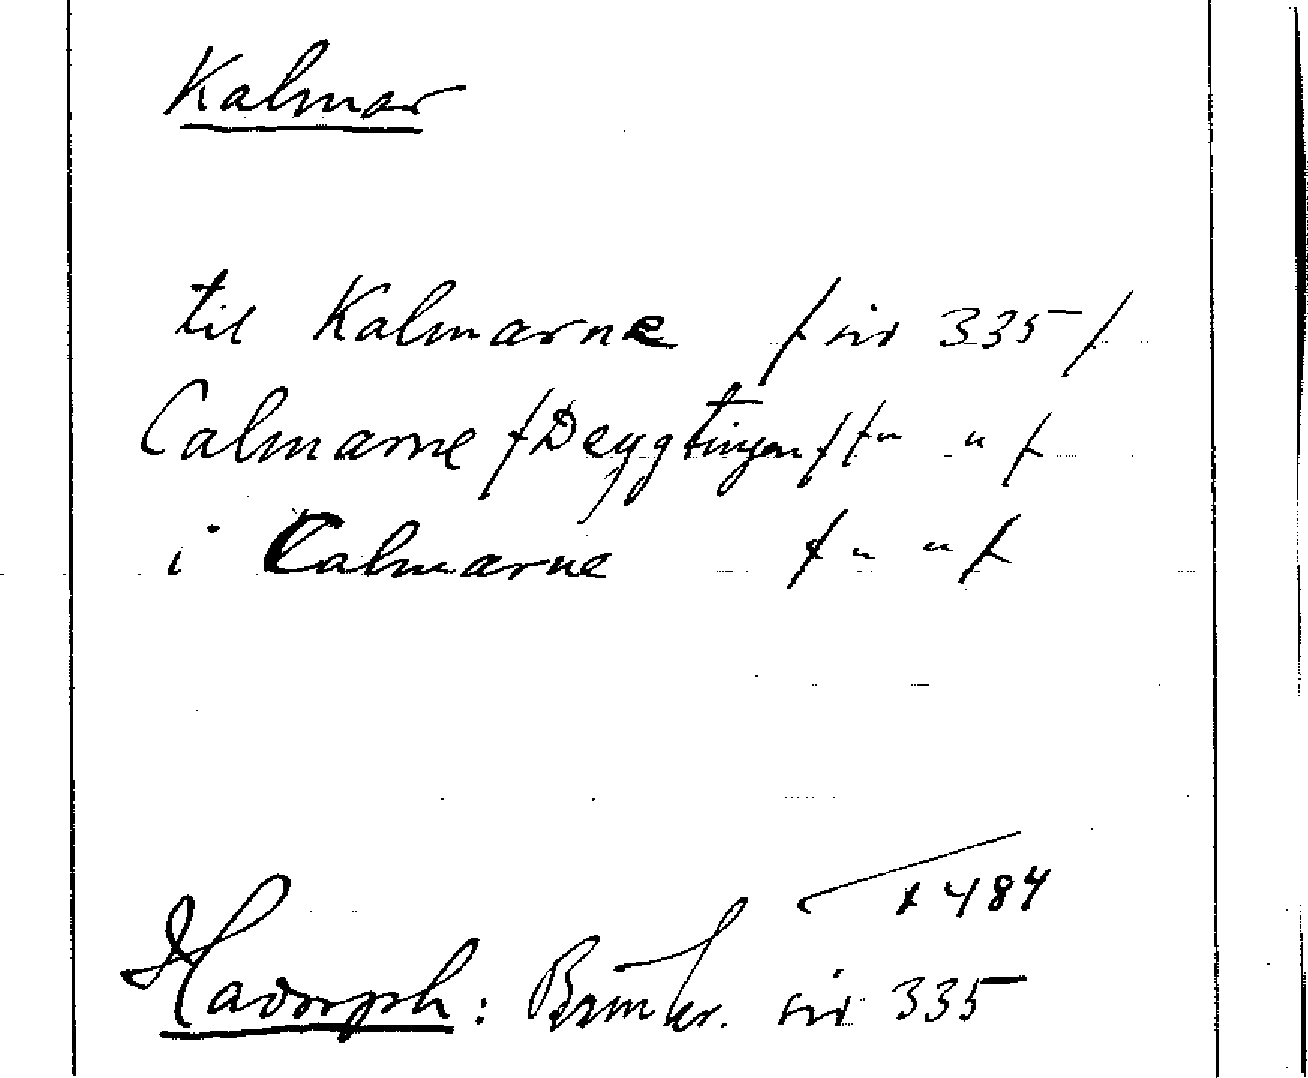 Kalmar
til Kalmarne / sid 335 /
Calmarne / Deggtingen / / " " /
i Calmarne / " " /
+ 484
Hadorph: Rimkr. sid 335